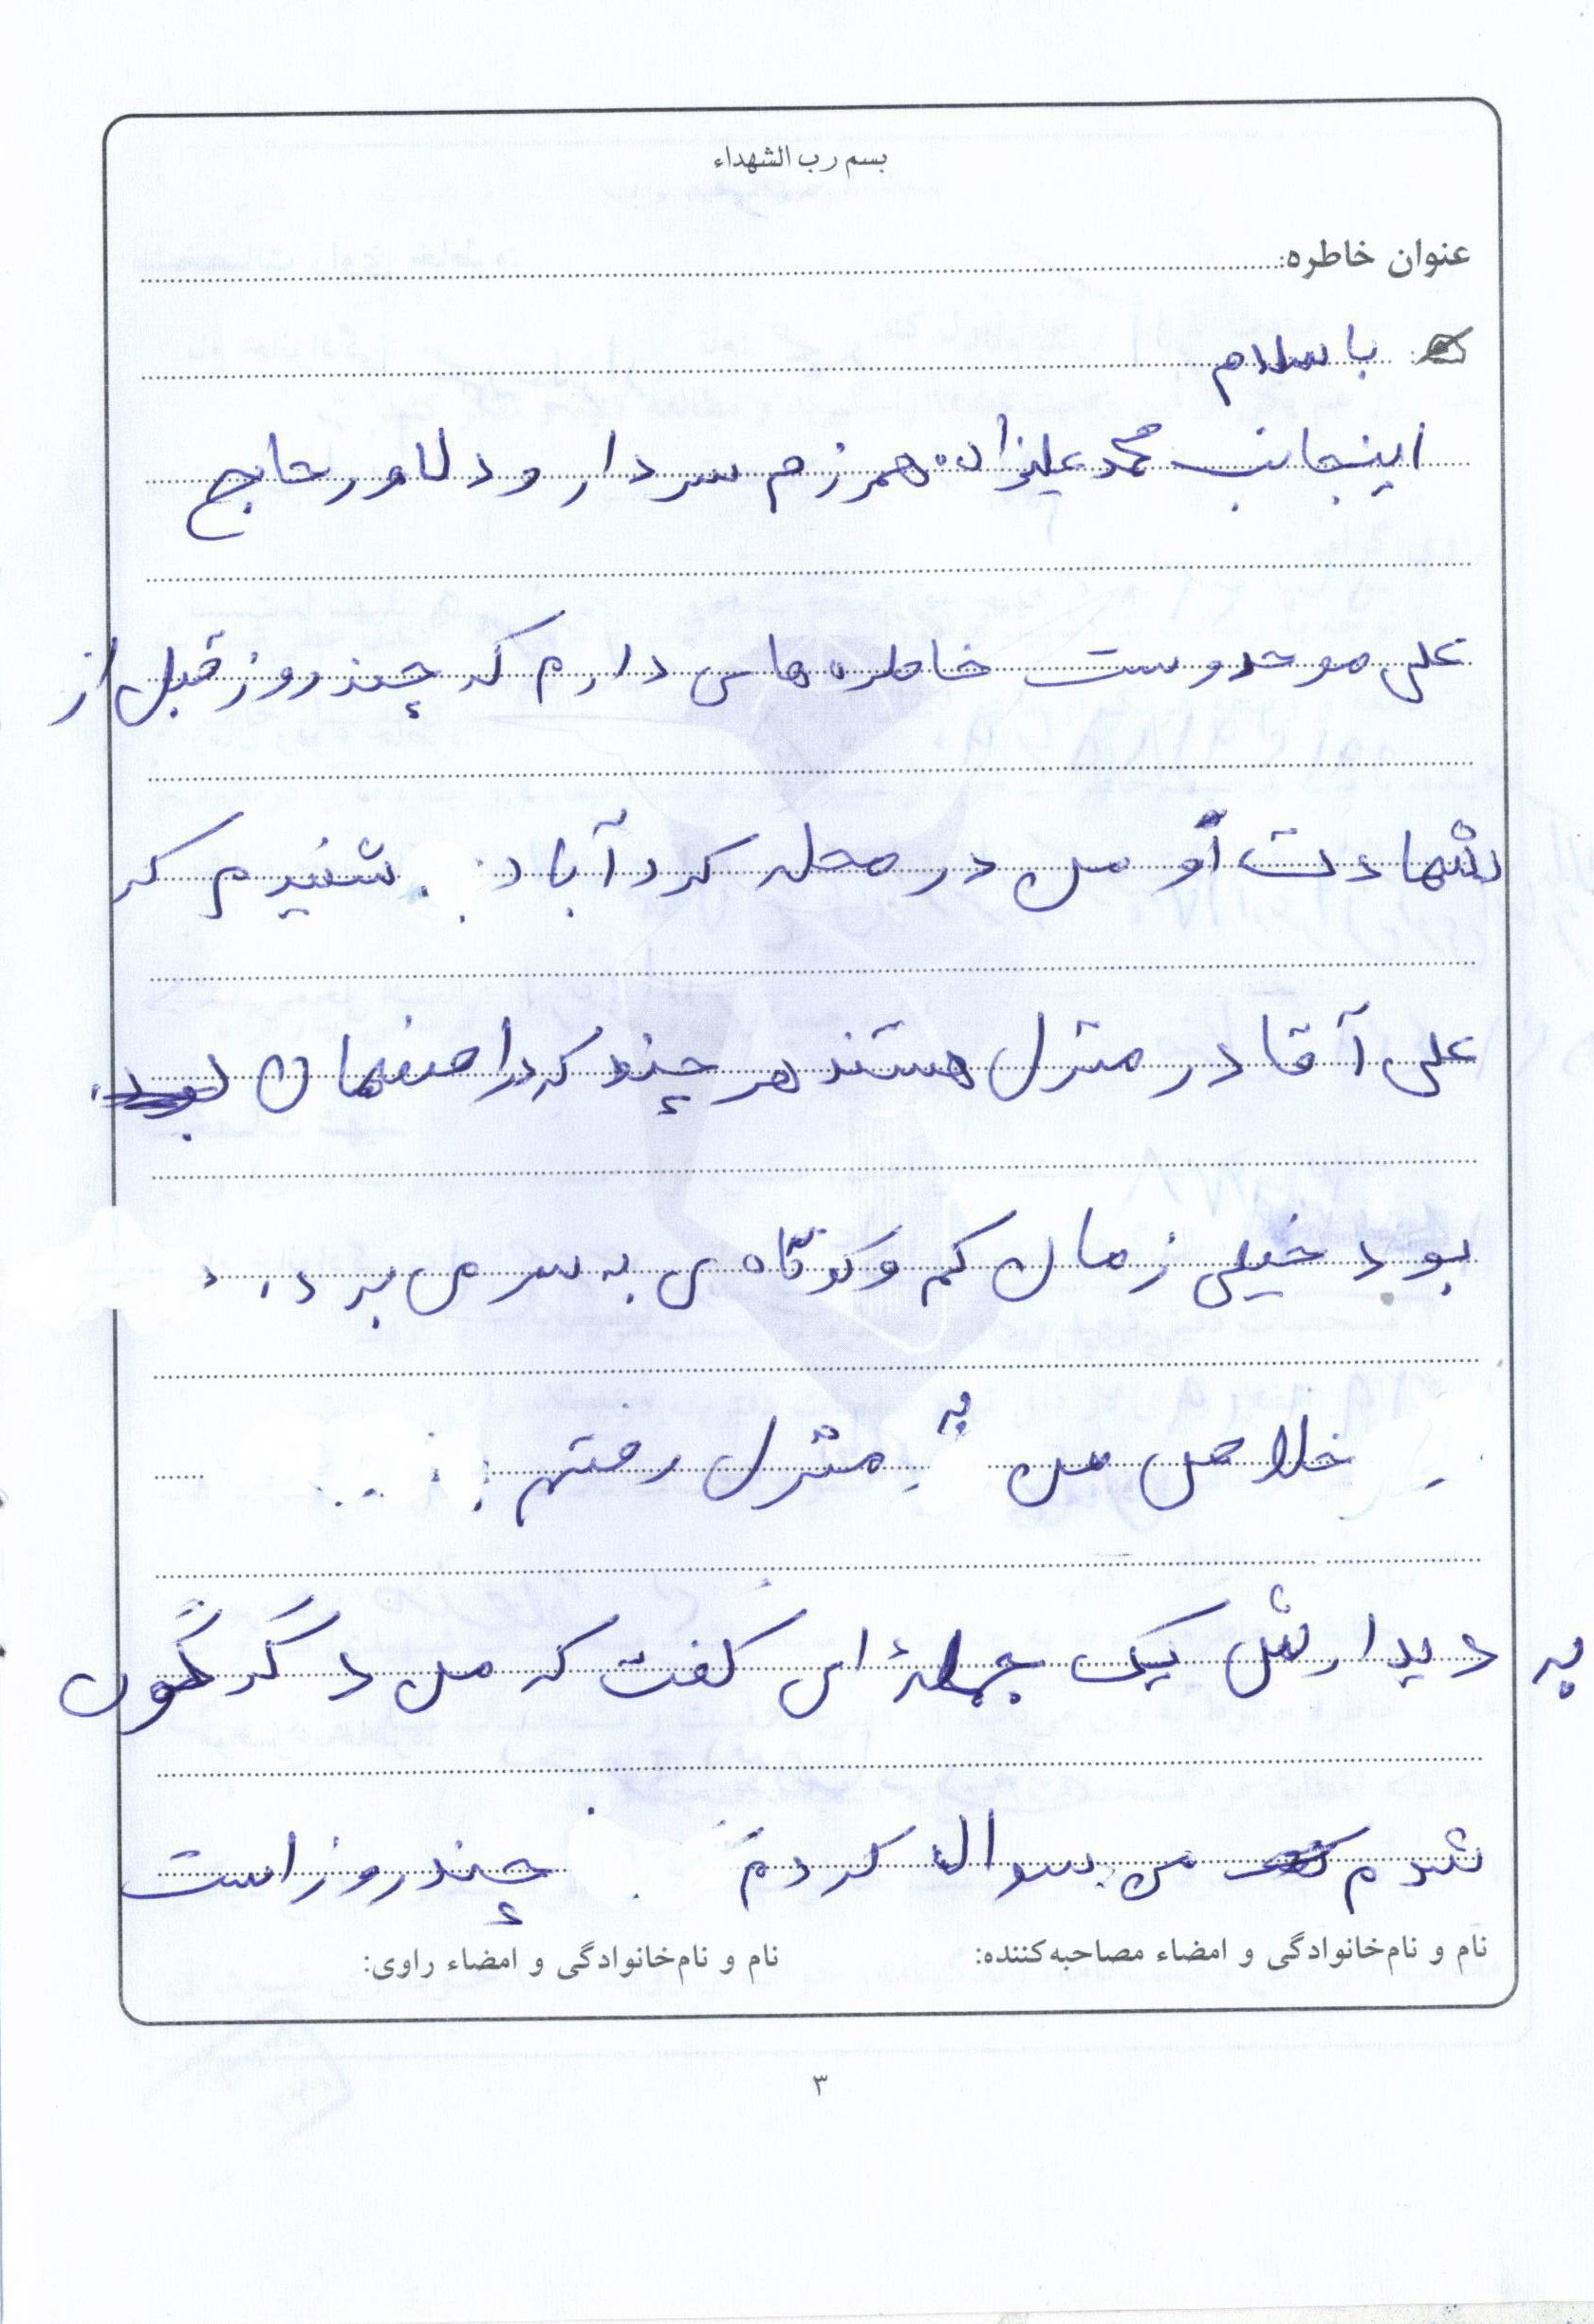 بسم رب الشهداء
عنوان خاطره:
با سلام
اینجانب محمد علیزاده همرزم سردار و دلاور حاج
علی موحدوست خاطره های دارم که چند روز قبل از
شهادت او من در محله کردآباد شنیدم که
علی آقا در منزل هستند هر چند که در اصفهان
بود خیلی زمان کم و کوتاه ی به سر می برد.
خلاص من به منزل رفتم
به دیدارش یک جمله ای گفت که من دگرگون
شدم من سوال کردم چند روز است
نام و نام‌خانوادگی و امضاء مصاحبه‌کننده:
نام و نام‌خانوادگی و امضاء راوی:
۳